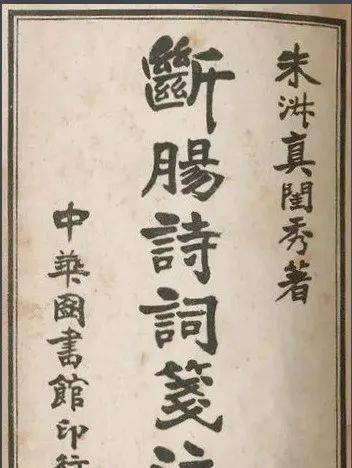 朱淑真閨秀著
斷腸詩詞箋注
中華圖書館印行